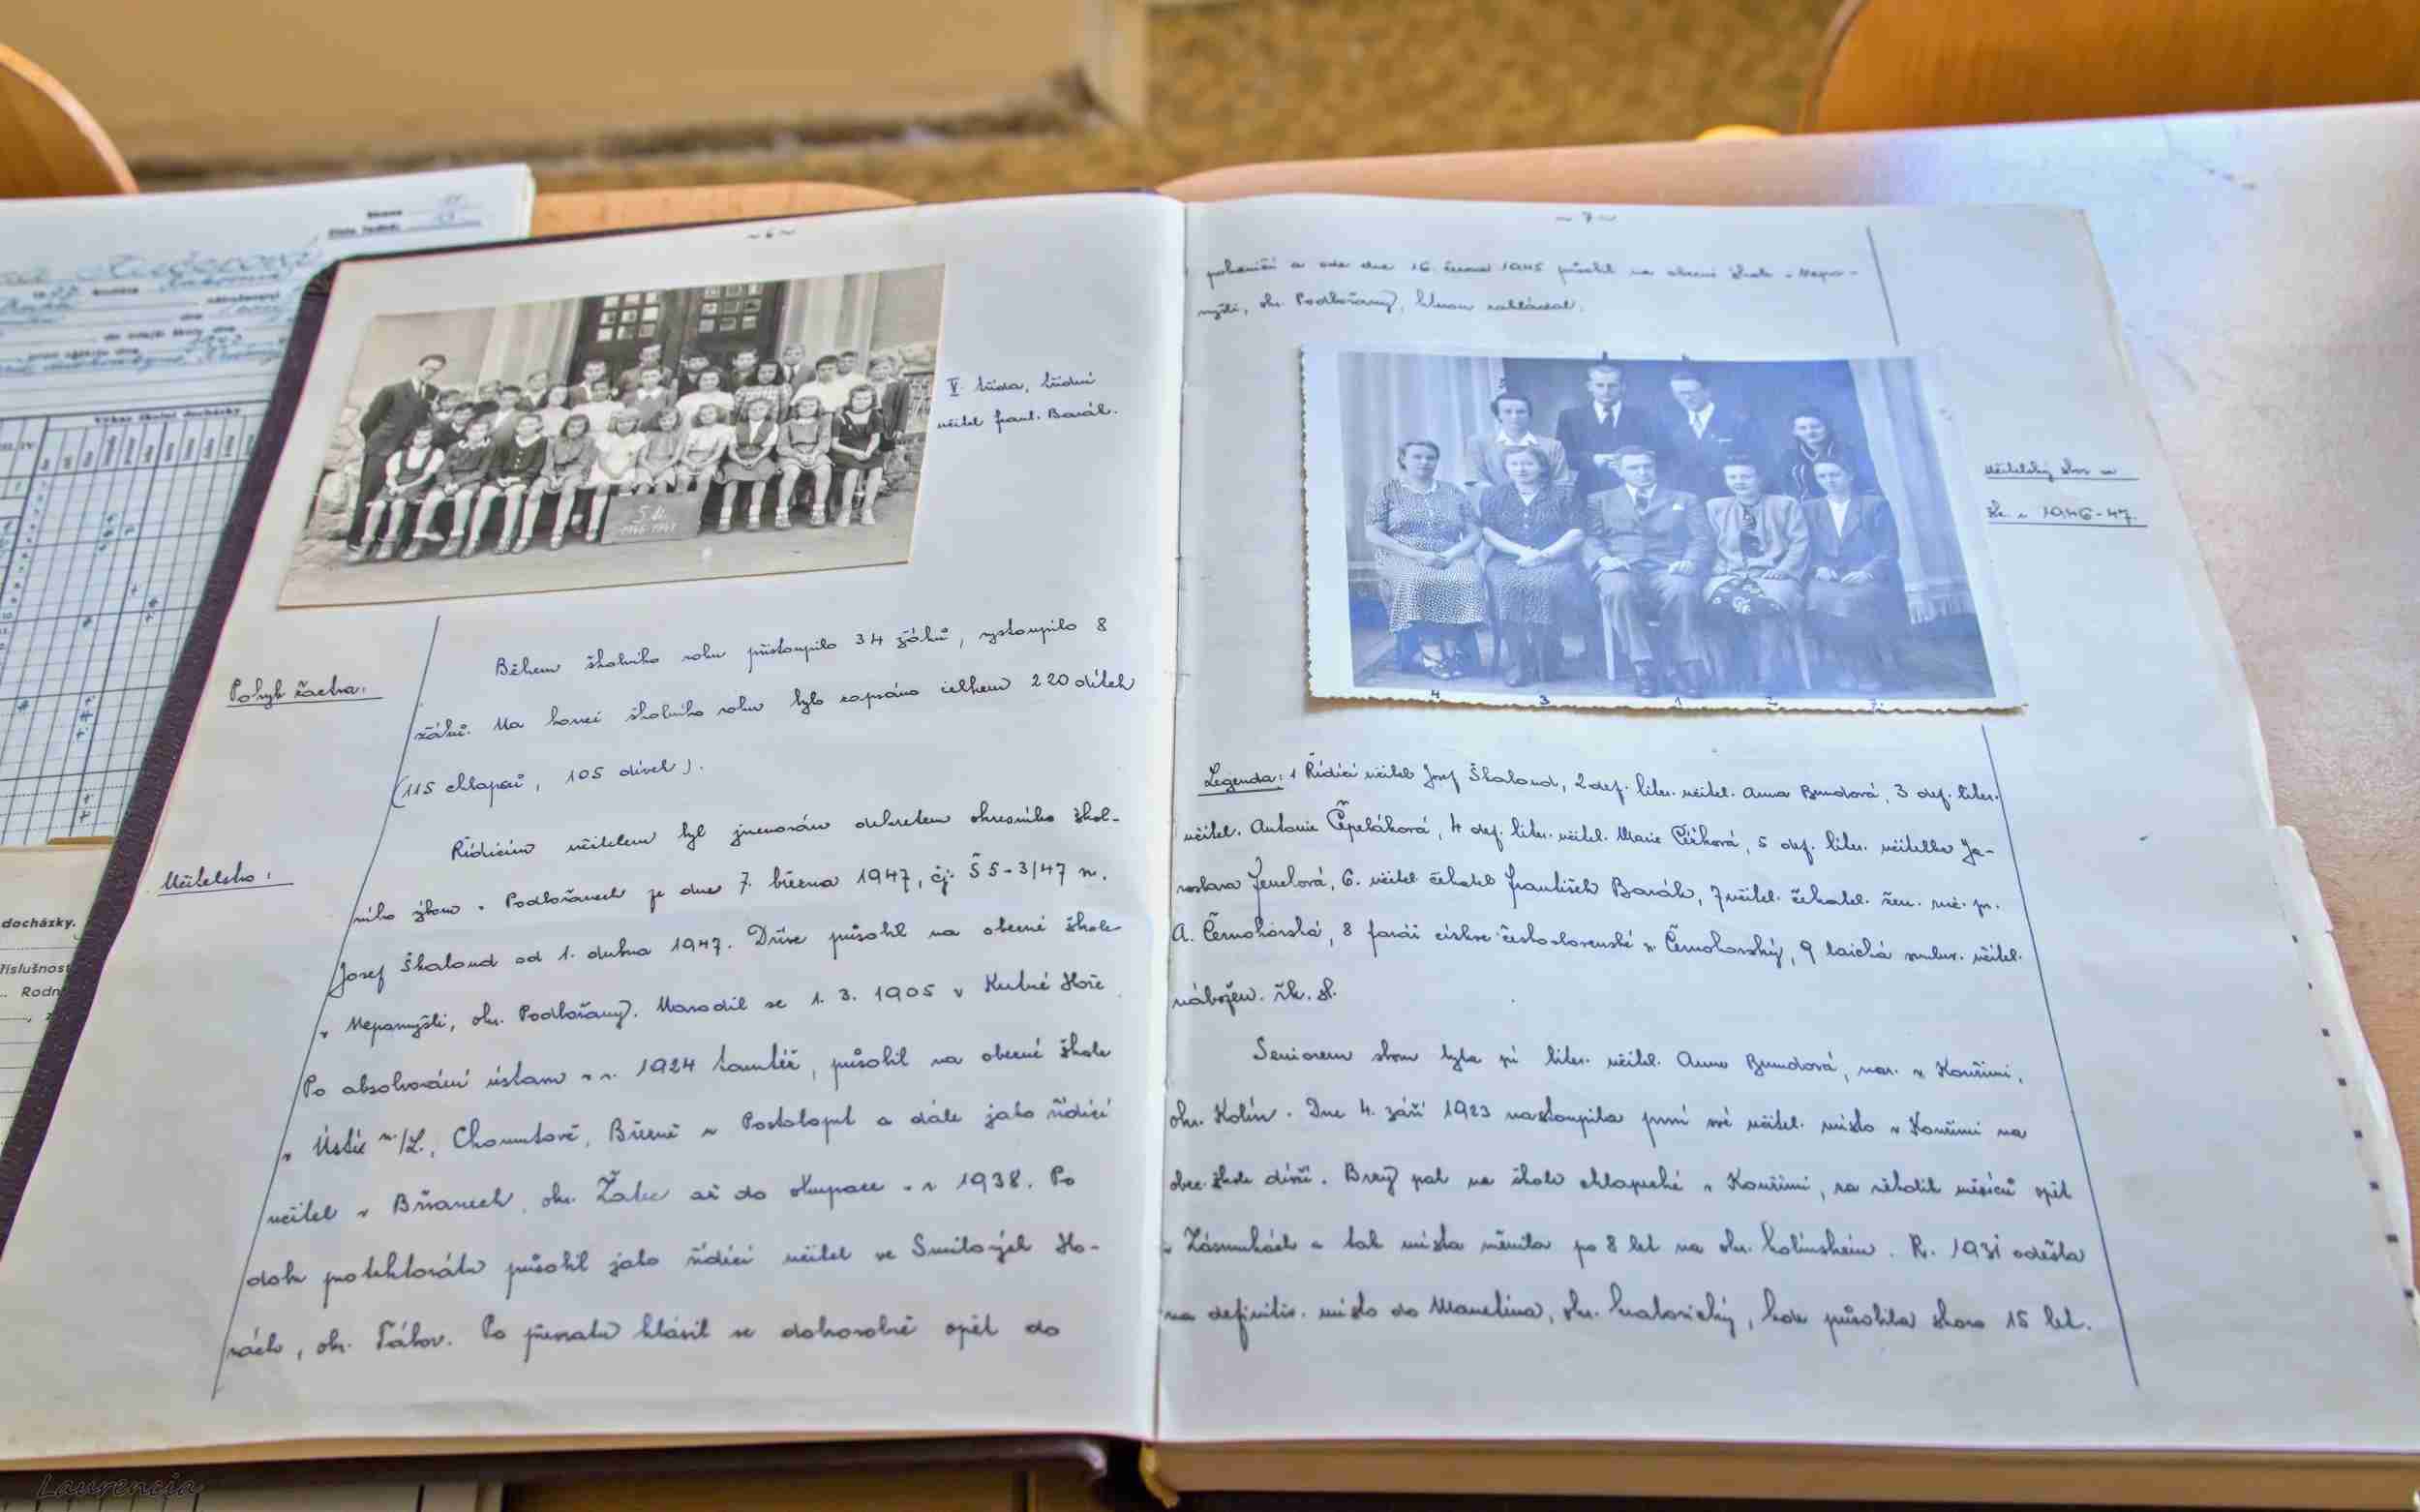 ~ 6 ~
V. třída, třídní
učitel Frant. Barák.
5. tř.
1946-1947
Pohyb žactva:
Během školního roku přistoupilo 34 žáků, vystoupilo 8
žáků. Na konci školního roku bylo zapsáno celkem 220 dítek
(115 chlapců, 105 dívek).
Učitelstvo:
Řídícím učitelem byl jmenován dekretem okresního škol-
ního výboru v Podbořanech ze dne 7. března 1947, čj. Š 5-3/47 n.
Josef Škaloud od 1. dubna 1947. Dříve působil na obecné škole
v Nepomyšli, okr. Podbořany. Narodil se 1. 3. 1905 v Kutné Hoře
Po absolvování ústavu v r. 1924 tamtéž, působil na obecné škole
v Ústí n./L., Chomutově, Březně u Postolopt a dále jako řídící
učitel v Břvanech, okr. Žatec až do okupace v r. 1938. Po
dobu protektorátu působil jako řídící učitel ve Smilových Ho-
rách, okr. Tábor. Po převratu hlásil se dobrovolně opět do
~ 7 ~
pohraničí a ode dne 16. června 1945 působil na obecné škole v Nepo-
myšli, okr. Podbořany, kterou zakládal.
Učitelský sbor ve
šk. r. 1946-47.
4 3 1 2 7.
Legenda: 1 Řídící učitel Josef Škaloud, 2 def. liter. učitel. Anna Bundová, 3 def. liter.
učitel. Antonie Čepeláková, 4 def. liter. učitel. Marie Čížková, 5 def. liter. učitelka Ja-
roslava Jenelová, 6. učitel čekatel František Barák, 7 učitel. čekatel. žen. ruč. pr.
A. Černohorská, 8 farář církve československé n Černohorský, 9 laická smluv. učitel.
nábožen. řk. sl.
Seniorem sboru byla pí liter. učitel. Anna Bundová, nar. v Kouřimi,
okr. Kolín. Dne 4. září 1923 nastoupila první své učitel. místo v Kouřimi na
obec. škole dívčí. Brzy pak na škole chlapecké v Kouřimi, za několik měsíců opět
v Zásmukách a tak místa měnila po 8 let na okr. kolínském. R. 1931 odešla
na definitiv. místo do Manětína, okr. kralovický, kde působila skoro 15 let.
docházky.
Rodn
Výkaz školní docházky
Laurencia